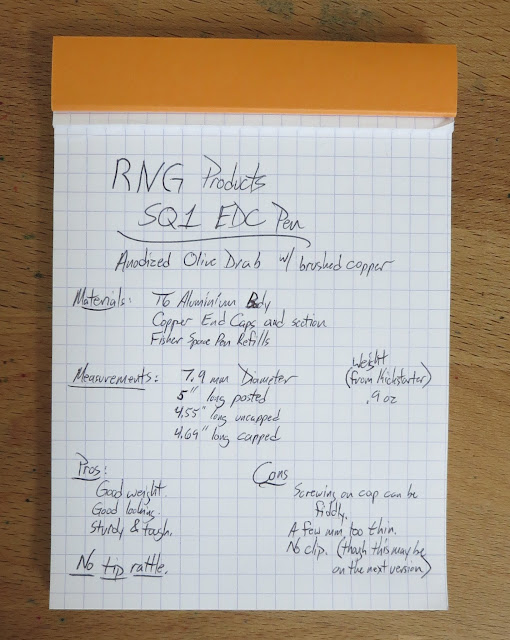 RNG Products
SQ1 EDC Pen
Anodized Olive Drab w/ brushed copper
Materials: T6 Aluminium Body
Copper End Caps and section
Fisher Space Pen Refills
Measurements: 7.9 mm Diameter
5" long posted
4.55" long uncapped
4.69" long capped
Weight
(from Kickstarter)
.9 oz
Pros:
Good weight.
Good looking.
Sturdy & tough.
No tip rattle.
Cons
Screwing on cap can be
fiddly.
A few mm too thin.
No clip. (though this may be
on the next version)